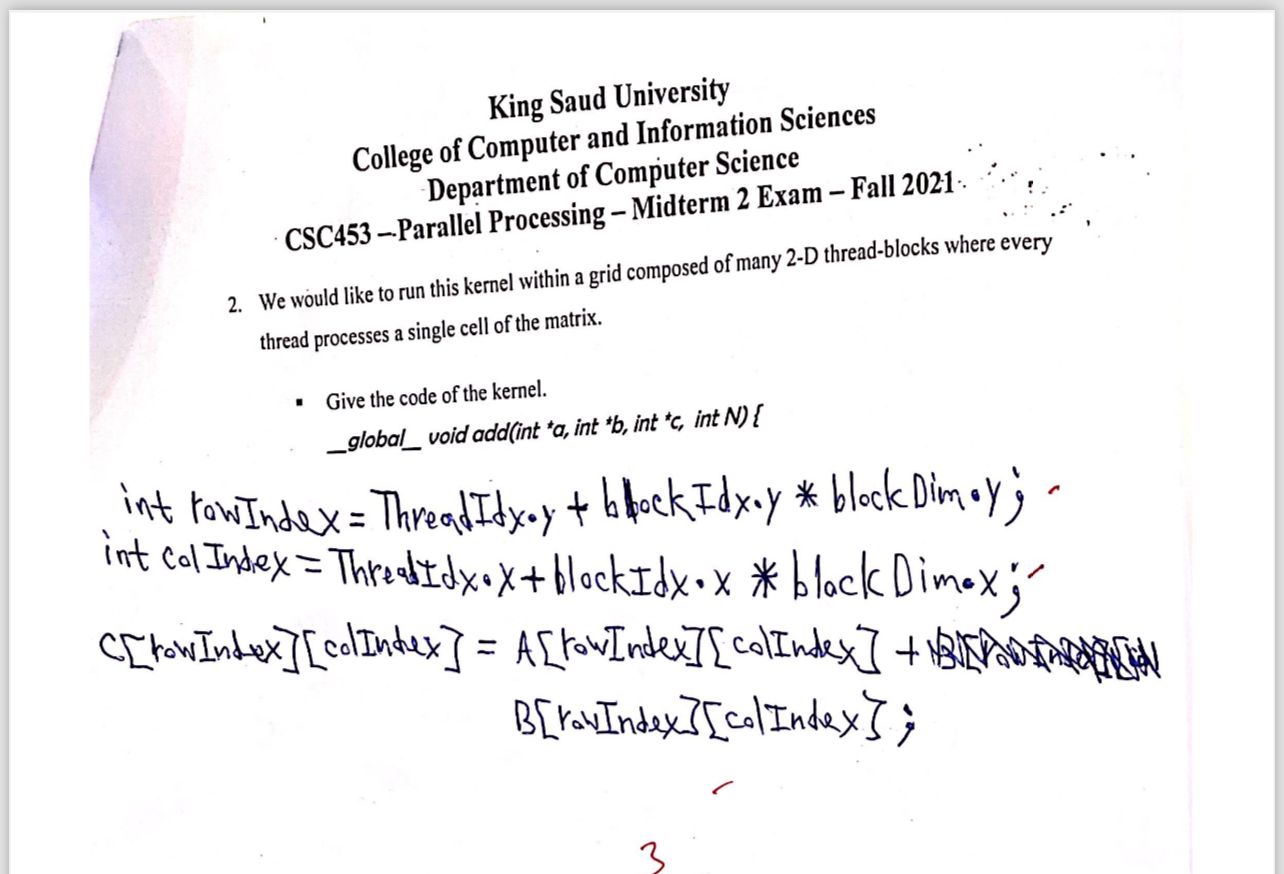 King Saud University
College of Computer and Information Sciences
Department of Computer Science
CSC453 –Parallel Processing – Midterm 2 Exam – Fall 2021
2. We would like to run this kernel within a grid composed of many 2-D thread-blocks where every
thread processes a single cell of the matrix.
▪ Give the code of the kernel.
__global__ void add(int *a, int *b, int *c, int N) {
int rowIndex = ThreadIdx.y + blockIdx.y * blockDim.y;
int colIndex = ThreadIdx.x + blockIdx.x * blockDim.x;
C[rowIndex][colIndex] = A[rowIndex][colIndex] +
B[rowIndex][colIndex];
3